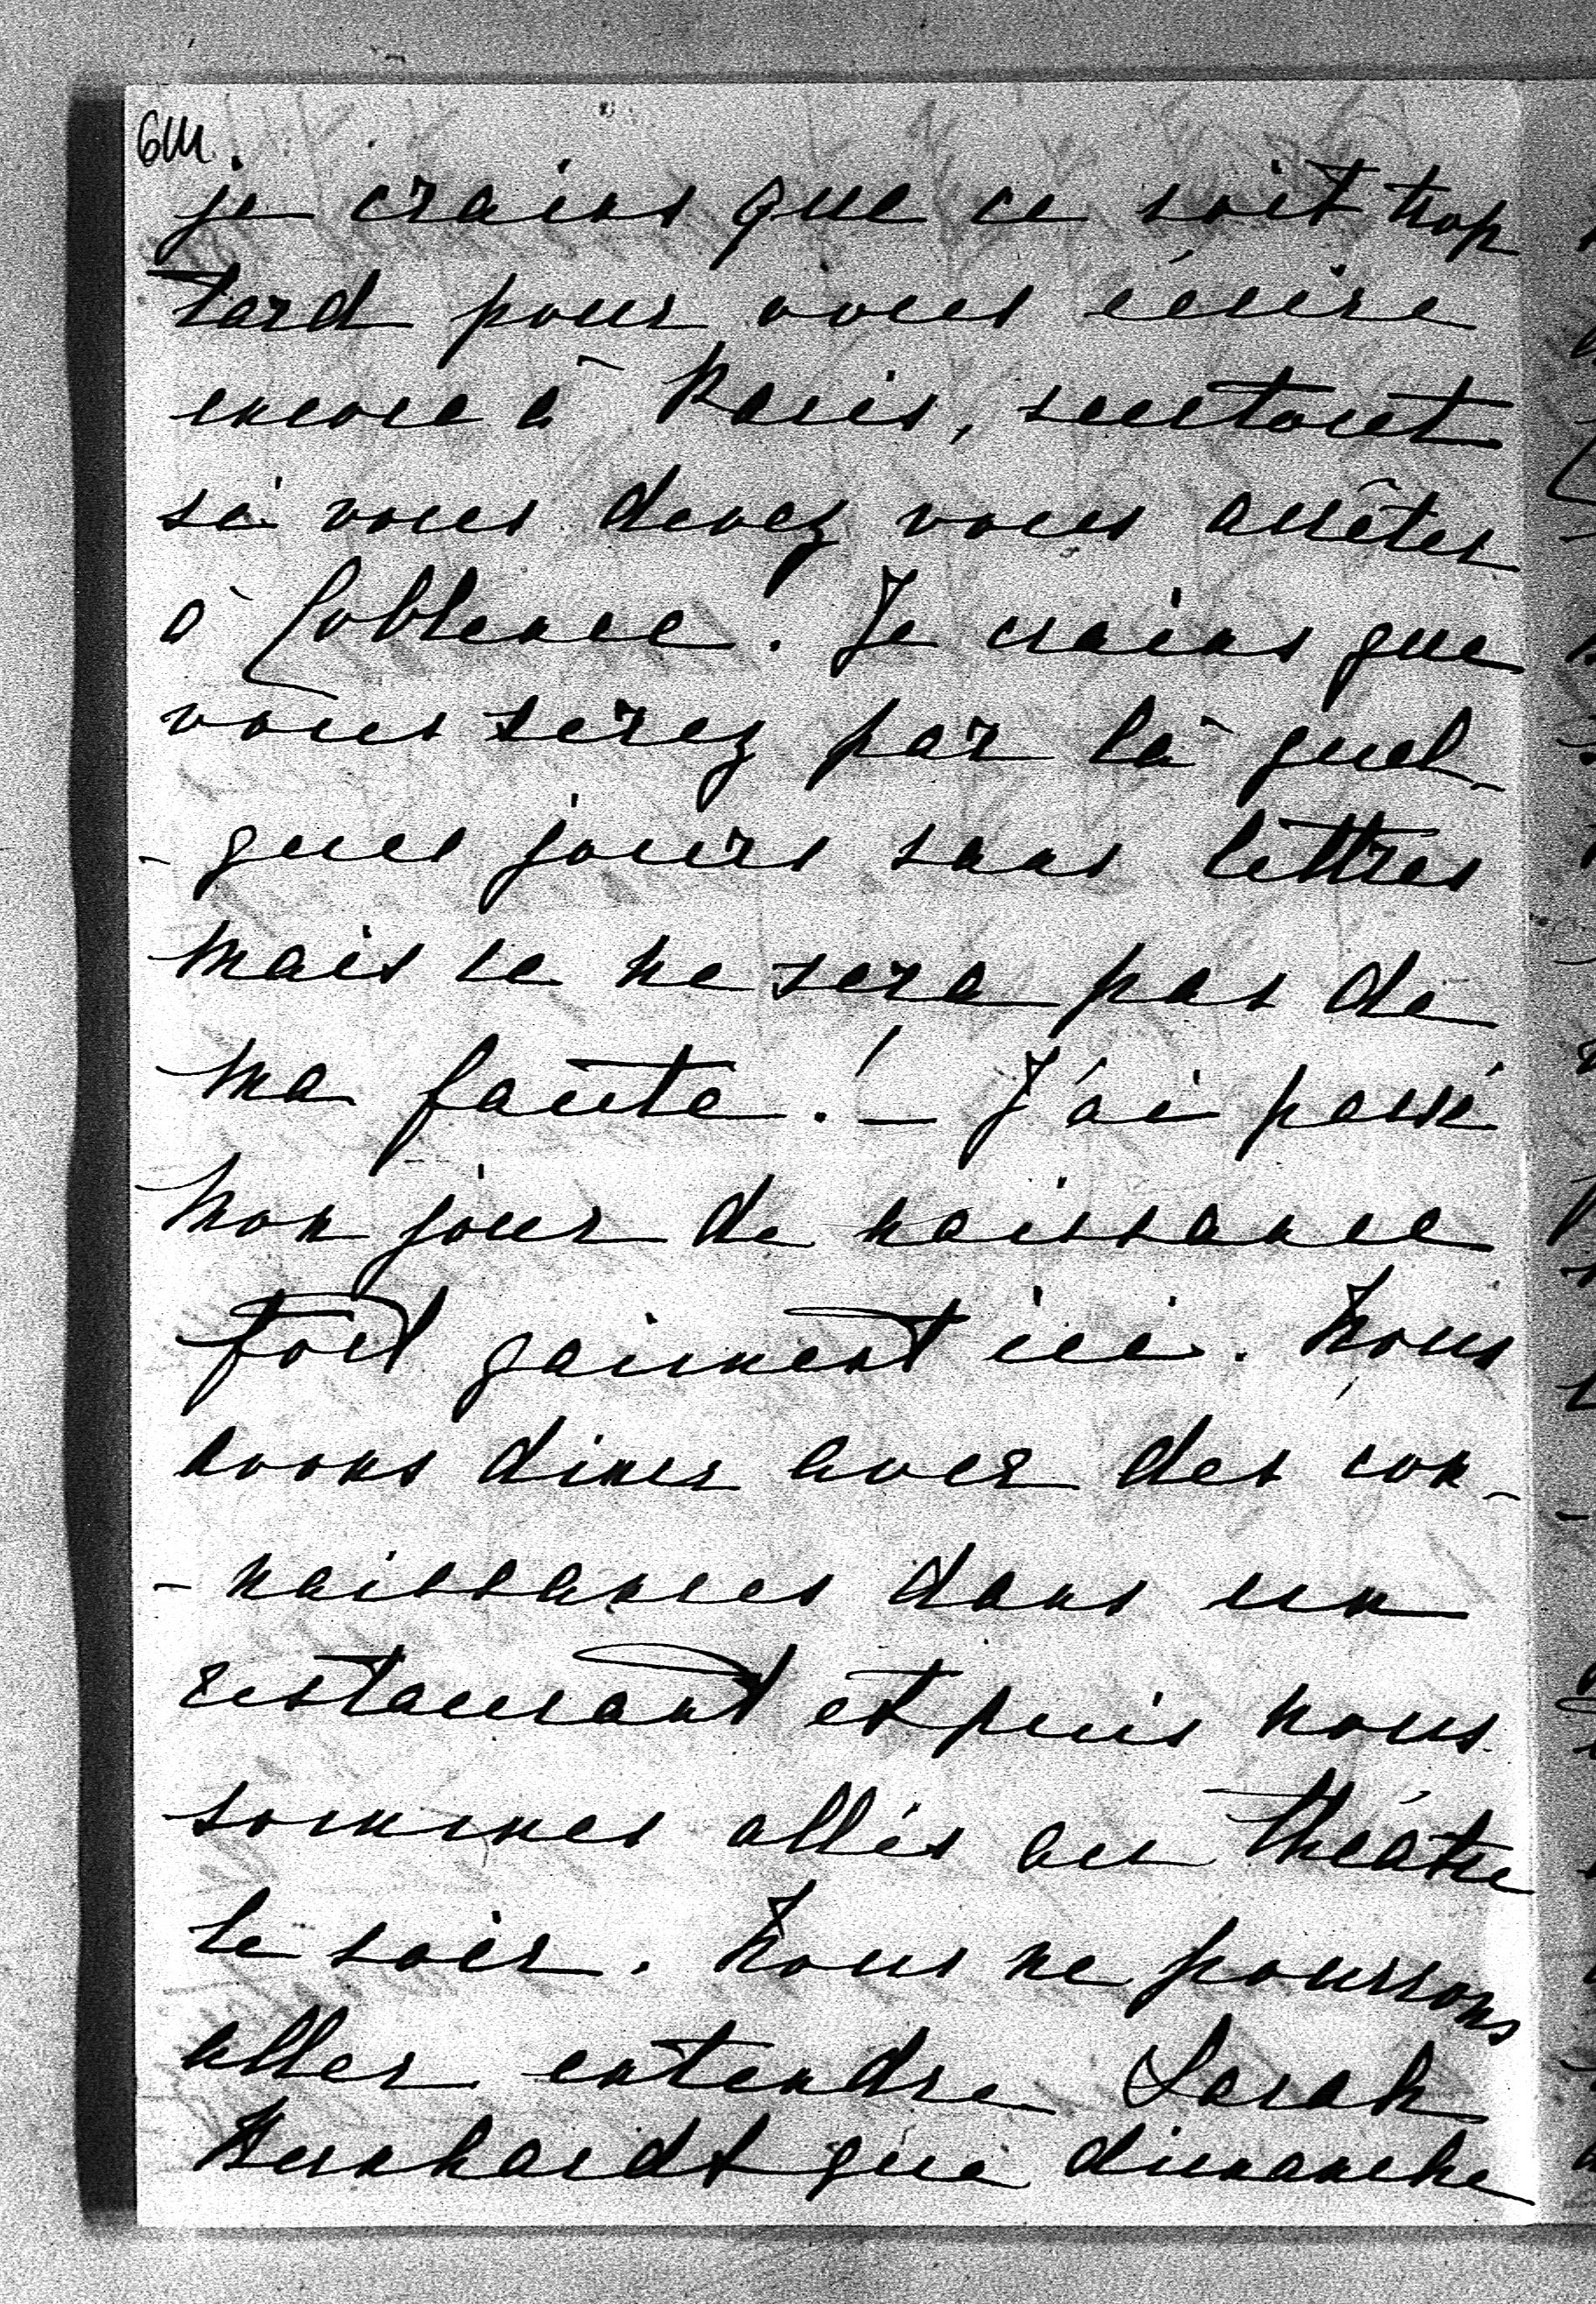 6III.
je crains que ce soit trop
tard pour vous écrire
encore à Paris, surtout
si vous devez vous arrêter
à Coblence. Je crains que
vous serez par là quel-
-ques jours sans lettres
mais ce ne sera pas de
ma faute! — J'ai passé
mon jour de naissance
fort gaiment ici. Nous
avons diner avec des con-
-naissances dans un
restaurant et puis nous
sommes allés au théâtre
le soir. Nous ne pourrons
aller entendre Sarah
Bernhardt que dimanche